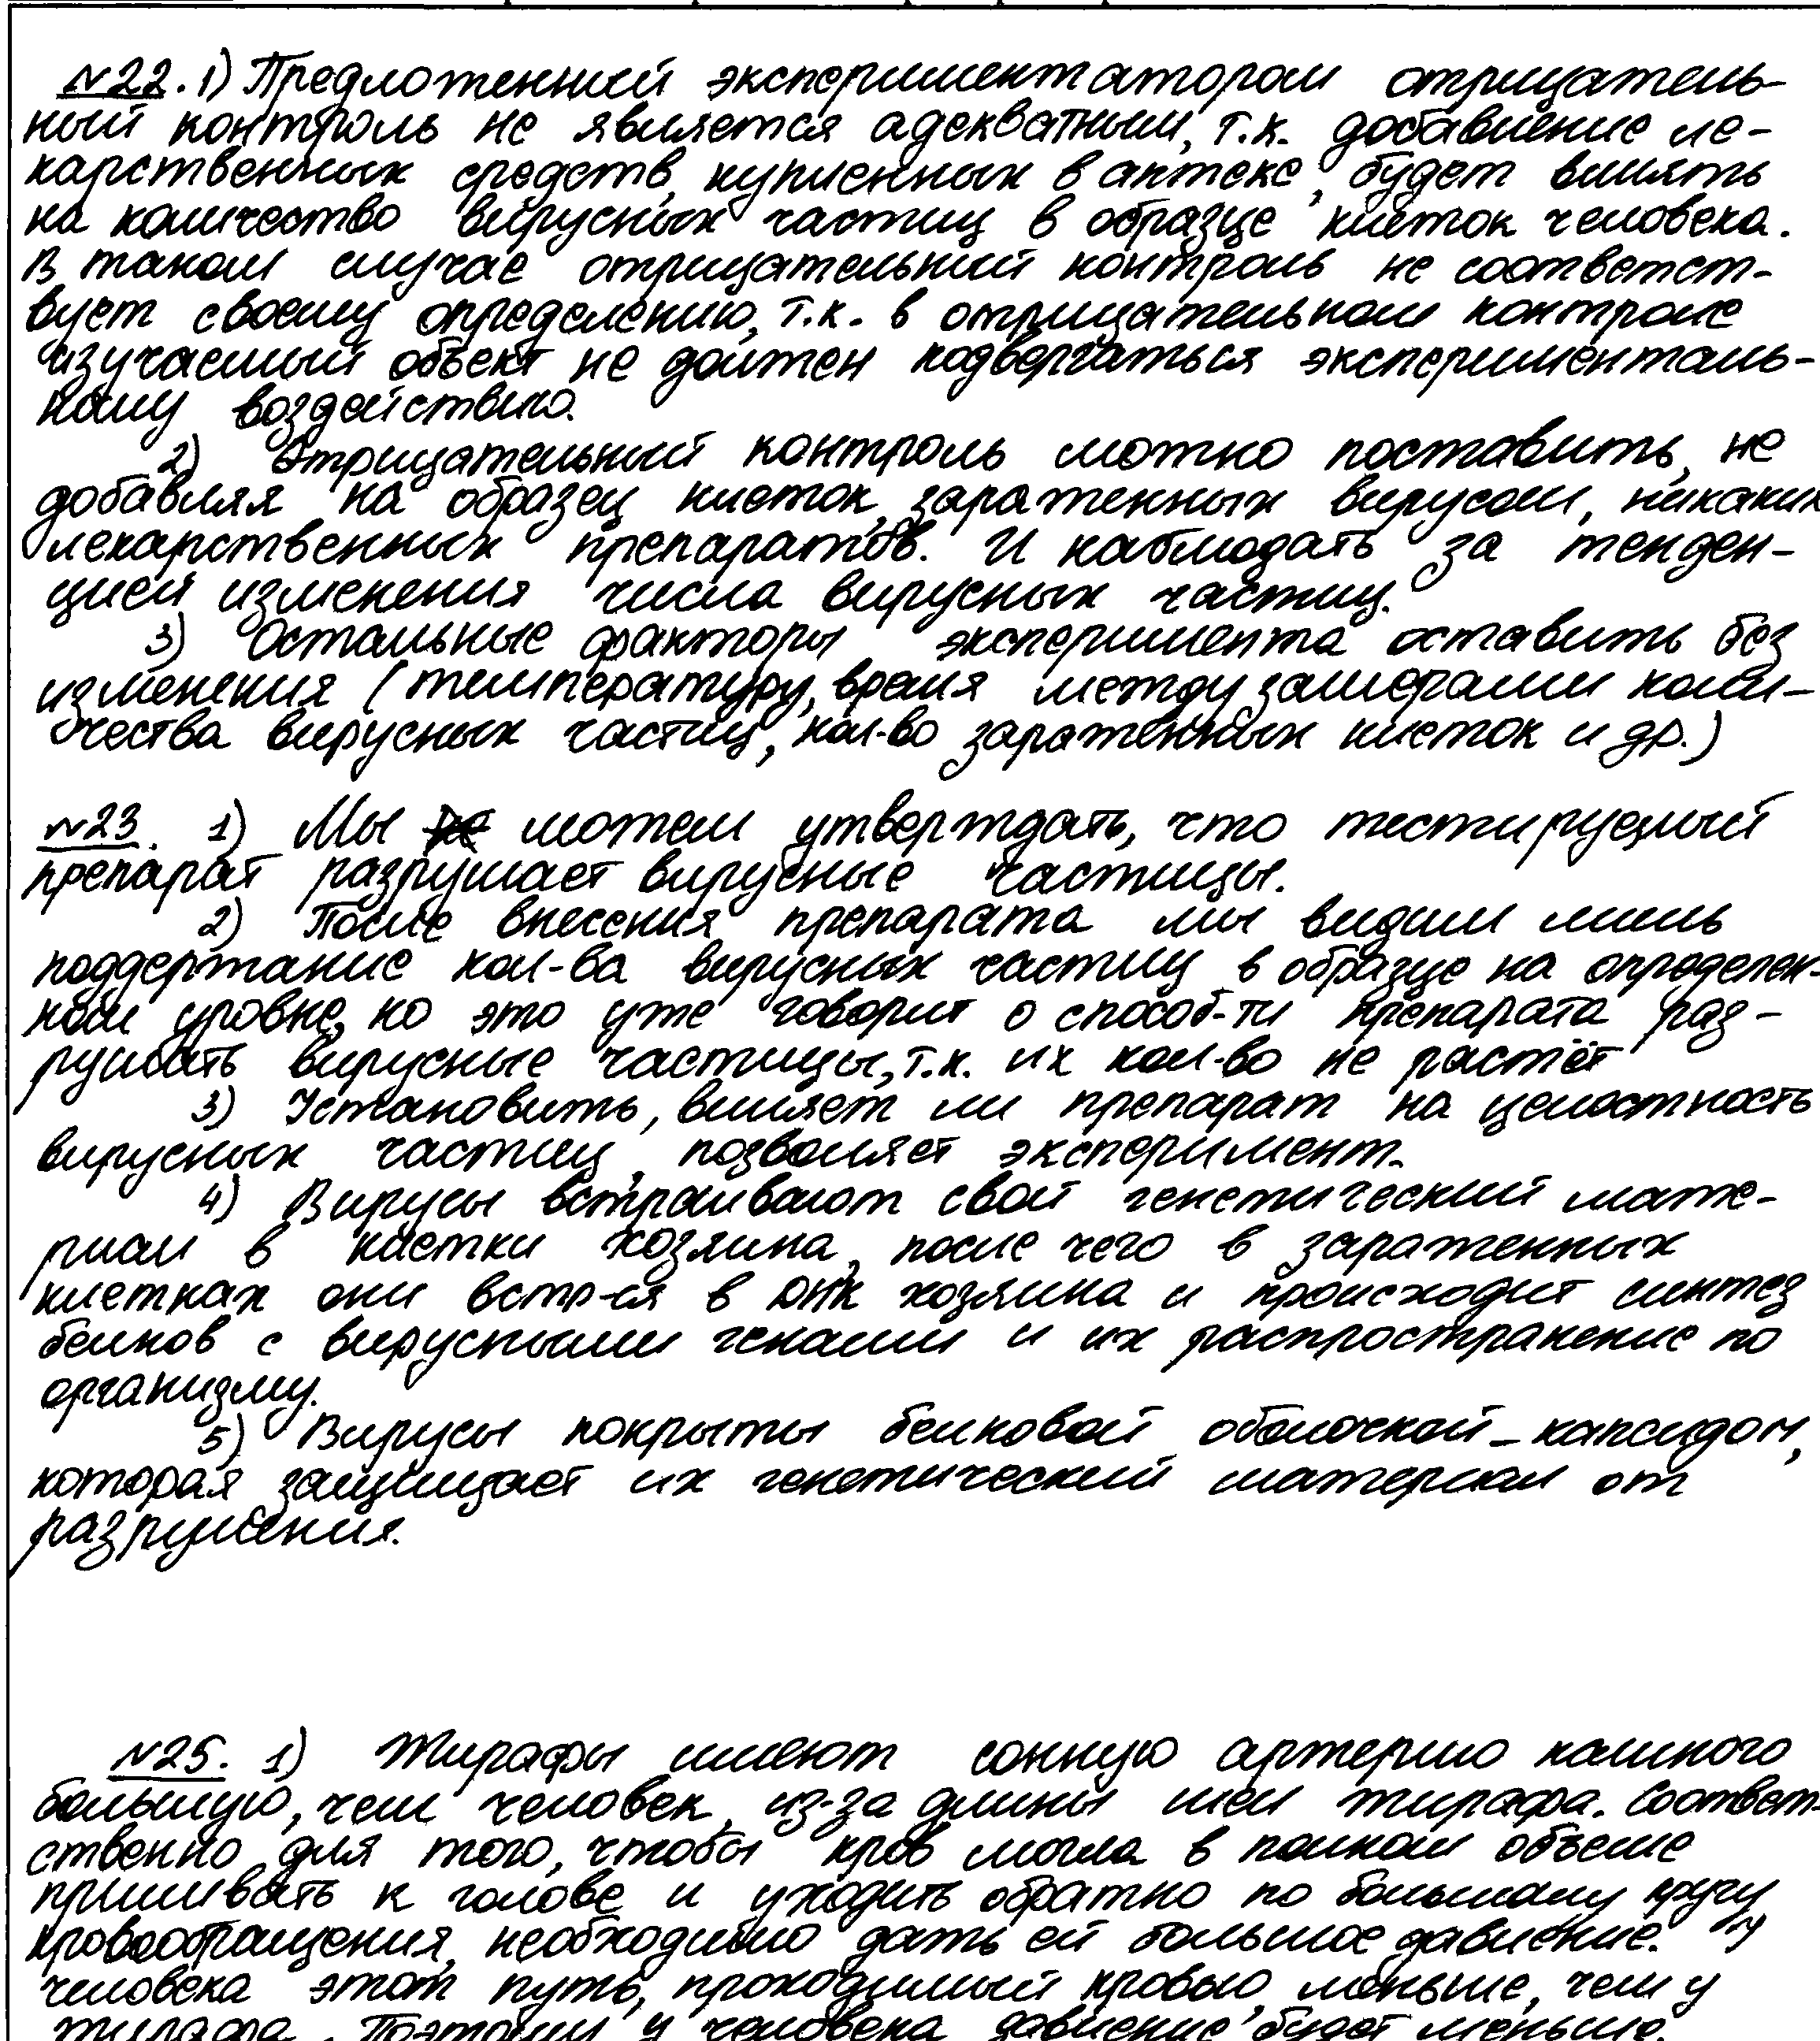 №22. 1) Предложенный экспериментатором отрицатель-
ный контроль не является адекватным, т.к. добавление ле-
карственных средств, купленных в аптеке, будет влиять
на количество вирусных частиц в образце клеток человека.
В таком случае отрицательный контроль не соответст-
вует своему определению, т.к. в отрицательном контроле
изучаемый объект не должен подвергаться эксперименталь-
ному воздействию.
2) Отрицательный контроль можно поставить, не
добавляя на образец клеток, зараженных вирусом, никаких
лекарственных препаратов. И наблюдать за тенден-
цией изменения числа вирусных частиц.
3) Остальные факторы эксперимента оставить без
изменения (температуру, время между замерами коли-
чества вирусных частиц, кол-во зараженных клеток и др.)
№23. 1) Мы можем утверждать, что тестируемый
препарат разрушает вирусные частицы.
2) После внесения препарата мы видим лишь
поддержание кол-ва вирусных частиц в образце на определен-
ном уровне, но это уже говорит о способ-ти препарата раз-
рушать вирусные частицы, т.к. их кол-во не растёт
3) Установить, влияет ли препарат на целостность
вирусных частиц, позволяет эксперимент.
4) Вирусы встраивают свой генетический мате-
риал в клетки хозяина, после чего в зараженных
клетках они встр-ся в ДНК хозяина и происходит синтез
белков с вирусными генами и их распространение по
организму.
5) Вирусы покрыты белковой оболочкой - капсидом,
которая защищает их генетический материал от
разрушения.
№25. 1) Жирафы имеют сонную артерию намного
большую, чем человек, из-за длины шеи жирафа. Соответ-
ственно для того, чтобы кровь могла в полном объеме
приливать к голове и уходить обратно по большому кругу
кровообращения, необходимо дать ей большое давление. У
человека этот путь, проходимый кровью, меньше, чем у
жирафа. Поэтому у человека давление будет меньше.